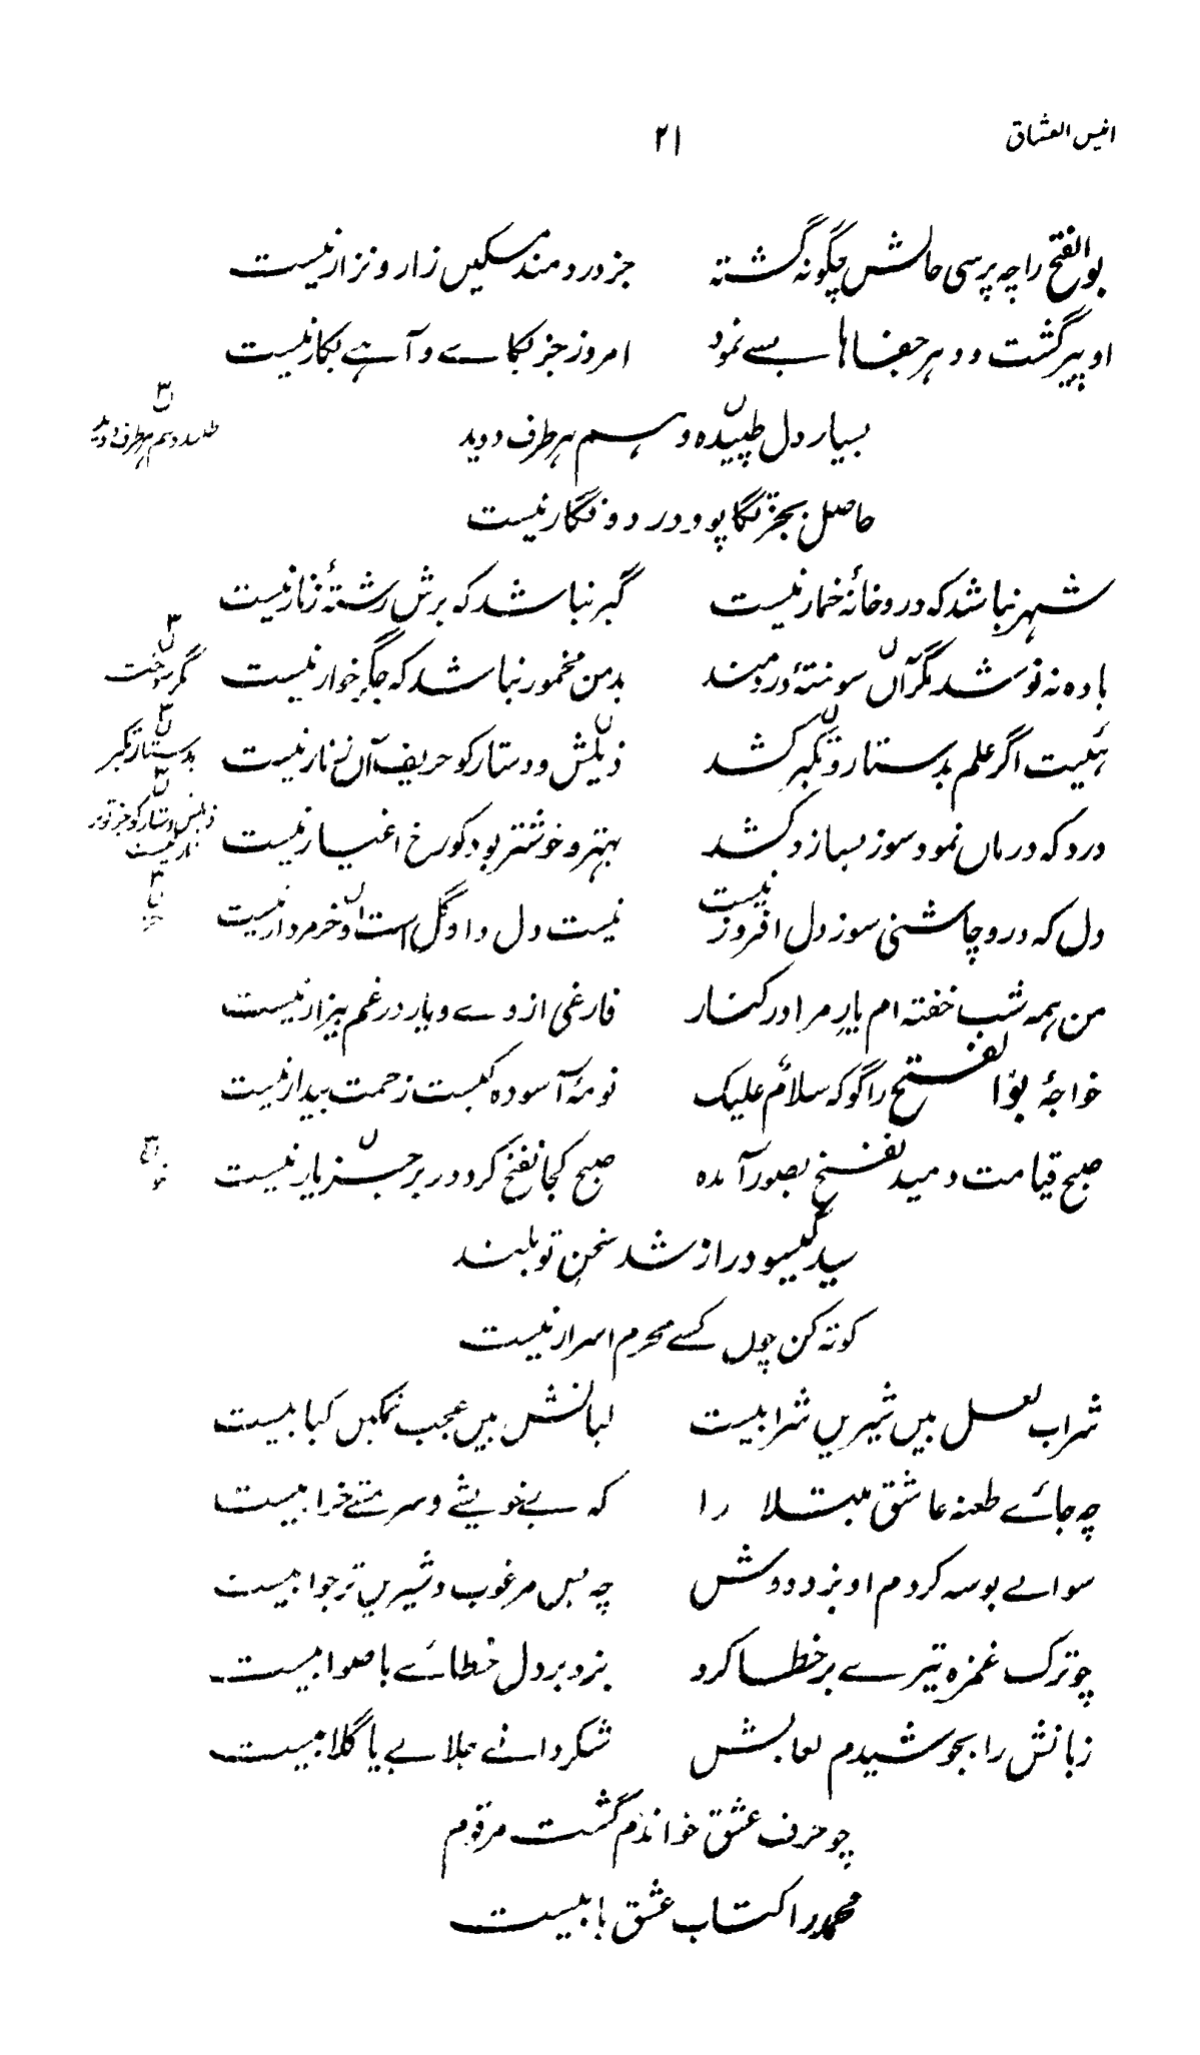 انیس العشاق
۲۱
بوالفتح را چہ پرسی حالش چگونہ گشتہ جز دردمند مسکیں زار و نزار نیست
او پیر گشت و دہر جفاہا بسے نمود امروز جز بکاے و آہے بکار نیست
بسیار دل طپیدہ و ہم ہر طرف دوید
حاصل بجز تگاپو و درد و نگار نیست
شہر نباشد کہ درو خانۂ خمار نیست گبر نباشد کہ برش رشتۂ زنار نیست
بادہ نہ نوشد مگر آں سوختۂ دردمند بدمن مخمور نباشد کہ جگر خوار نیست
گر سوخت
ہئیت اگر علم بدستار و تکبر کشد ذیلش و دستار کو حریف آں نار نیست
بدستار تکبر
درد کہ درماں نمود سوز بساز و کشد بہتر و خوشتر بود کو رخ اغیار نیست
دل کہ درو چاشنی سوز دل افروز نیست نیست دل و او گل است او خر مردار نیست
من ہمہ شب خفتہ ام یارِ مرا در کنار فارغی از وے و یار در غم بیزار نیست
خواجۂ بوالفتح را گو کہ سلامٌ علیک نومۂ آسودہ کیست زحمت بیدار نیست
صبح قیامت دمید نفخ بصور آمدہ صبح کجا نفخ کرد در بر جز یار نیست
سید گیسو دراز شد سخن تو بلند
کوتہ کن چوں کسے محرم اسرار نیست
شراب لعل بیں شیریں شرابیست لبانش بیں عجب نمکیں کبابیست
چہ جائے طعنہ عاشق مبتلا را کہ بے خویشے و سرمستے خرابیست
سوالے بوسہ کردم او بزد دوش چہ بس مرغوب و شیریں تر جوابیست
چو ترک غمزہ تیرے بر خطا کرد بزد بر دل خطائے با صوابیست
زبانش را بجوشیدم لعابش شکر دانے جلابے یا گلابیست
چو حرف عشق خواندم گشت مرقوم
محمد را کتاب عشق بابیست